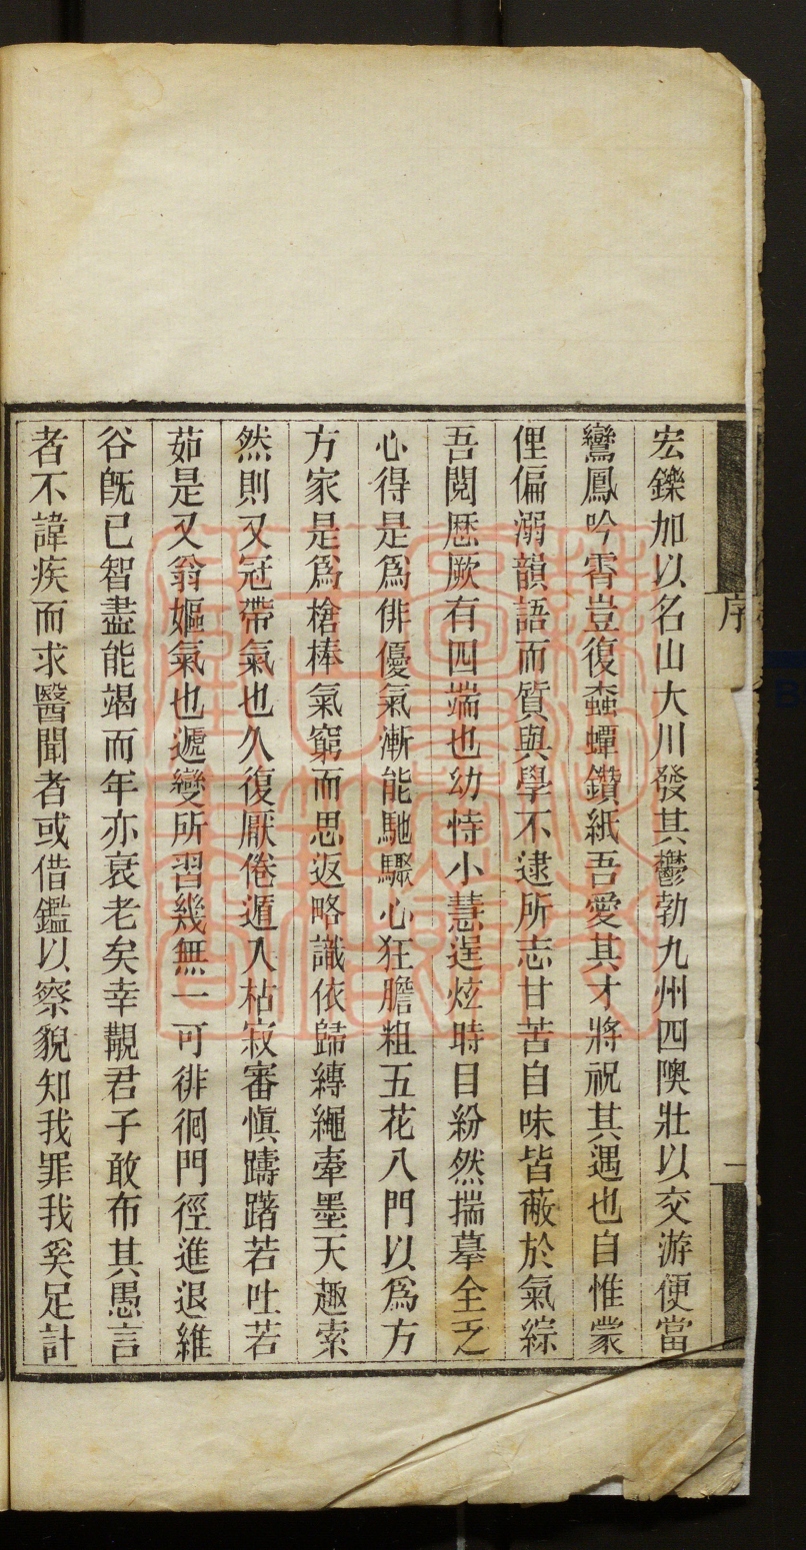 序
一
宏鑠加以名山大川發其鬱勃九州四隩壯以交游便當
鸞鳳吟霄豈復蠧蟫鑽紙吾愛其才將祝其遇也自惟蒙
俚偏溺韻語而質與學不逮所志甘苦自味皆蔽於氣綜
吾閱厯厥有四端也幼恃小慧逞炫時目紛然揣摹全乏
心得是爲俳優氣漸能馳驟心狂膽粗五花八門以爲方
方家是爲槍棒氣窮而思返略識依歸縛繩牽墨天趣索
然則又冠帶氣也久復厭倦遁入枯寂審愼躊躇若吐若
茹是又翁嫗氣也遞變所習幾無一可徘徊門徑進退維
谷旣已智盡能竭而年亦衰老矣幸覯君子敢布其愚言
者不諱疾而求醫聞者或借鑑以察貌知我罪我奚足計